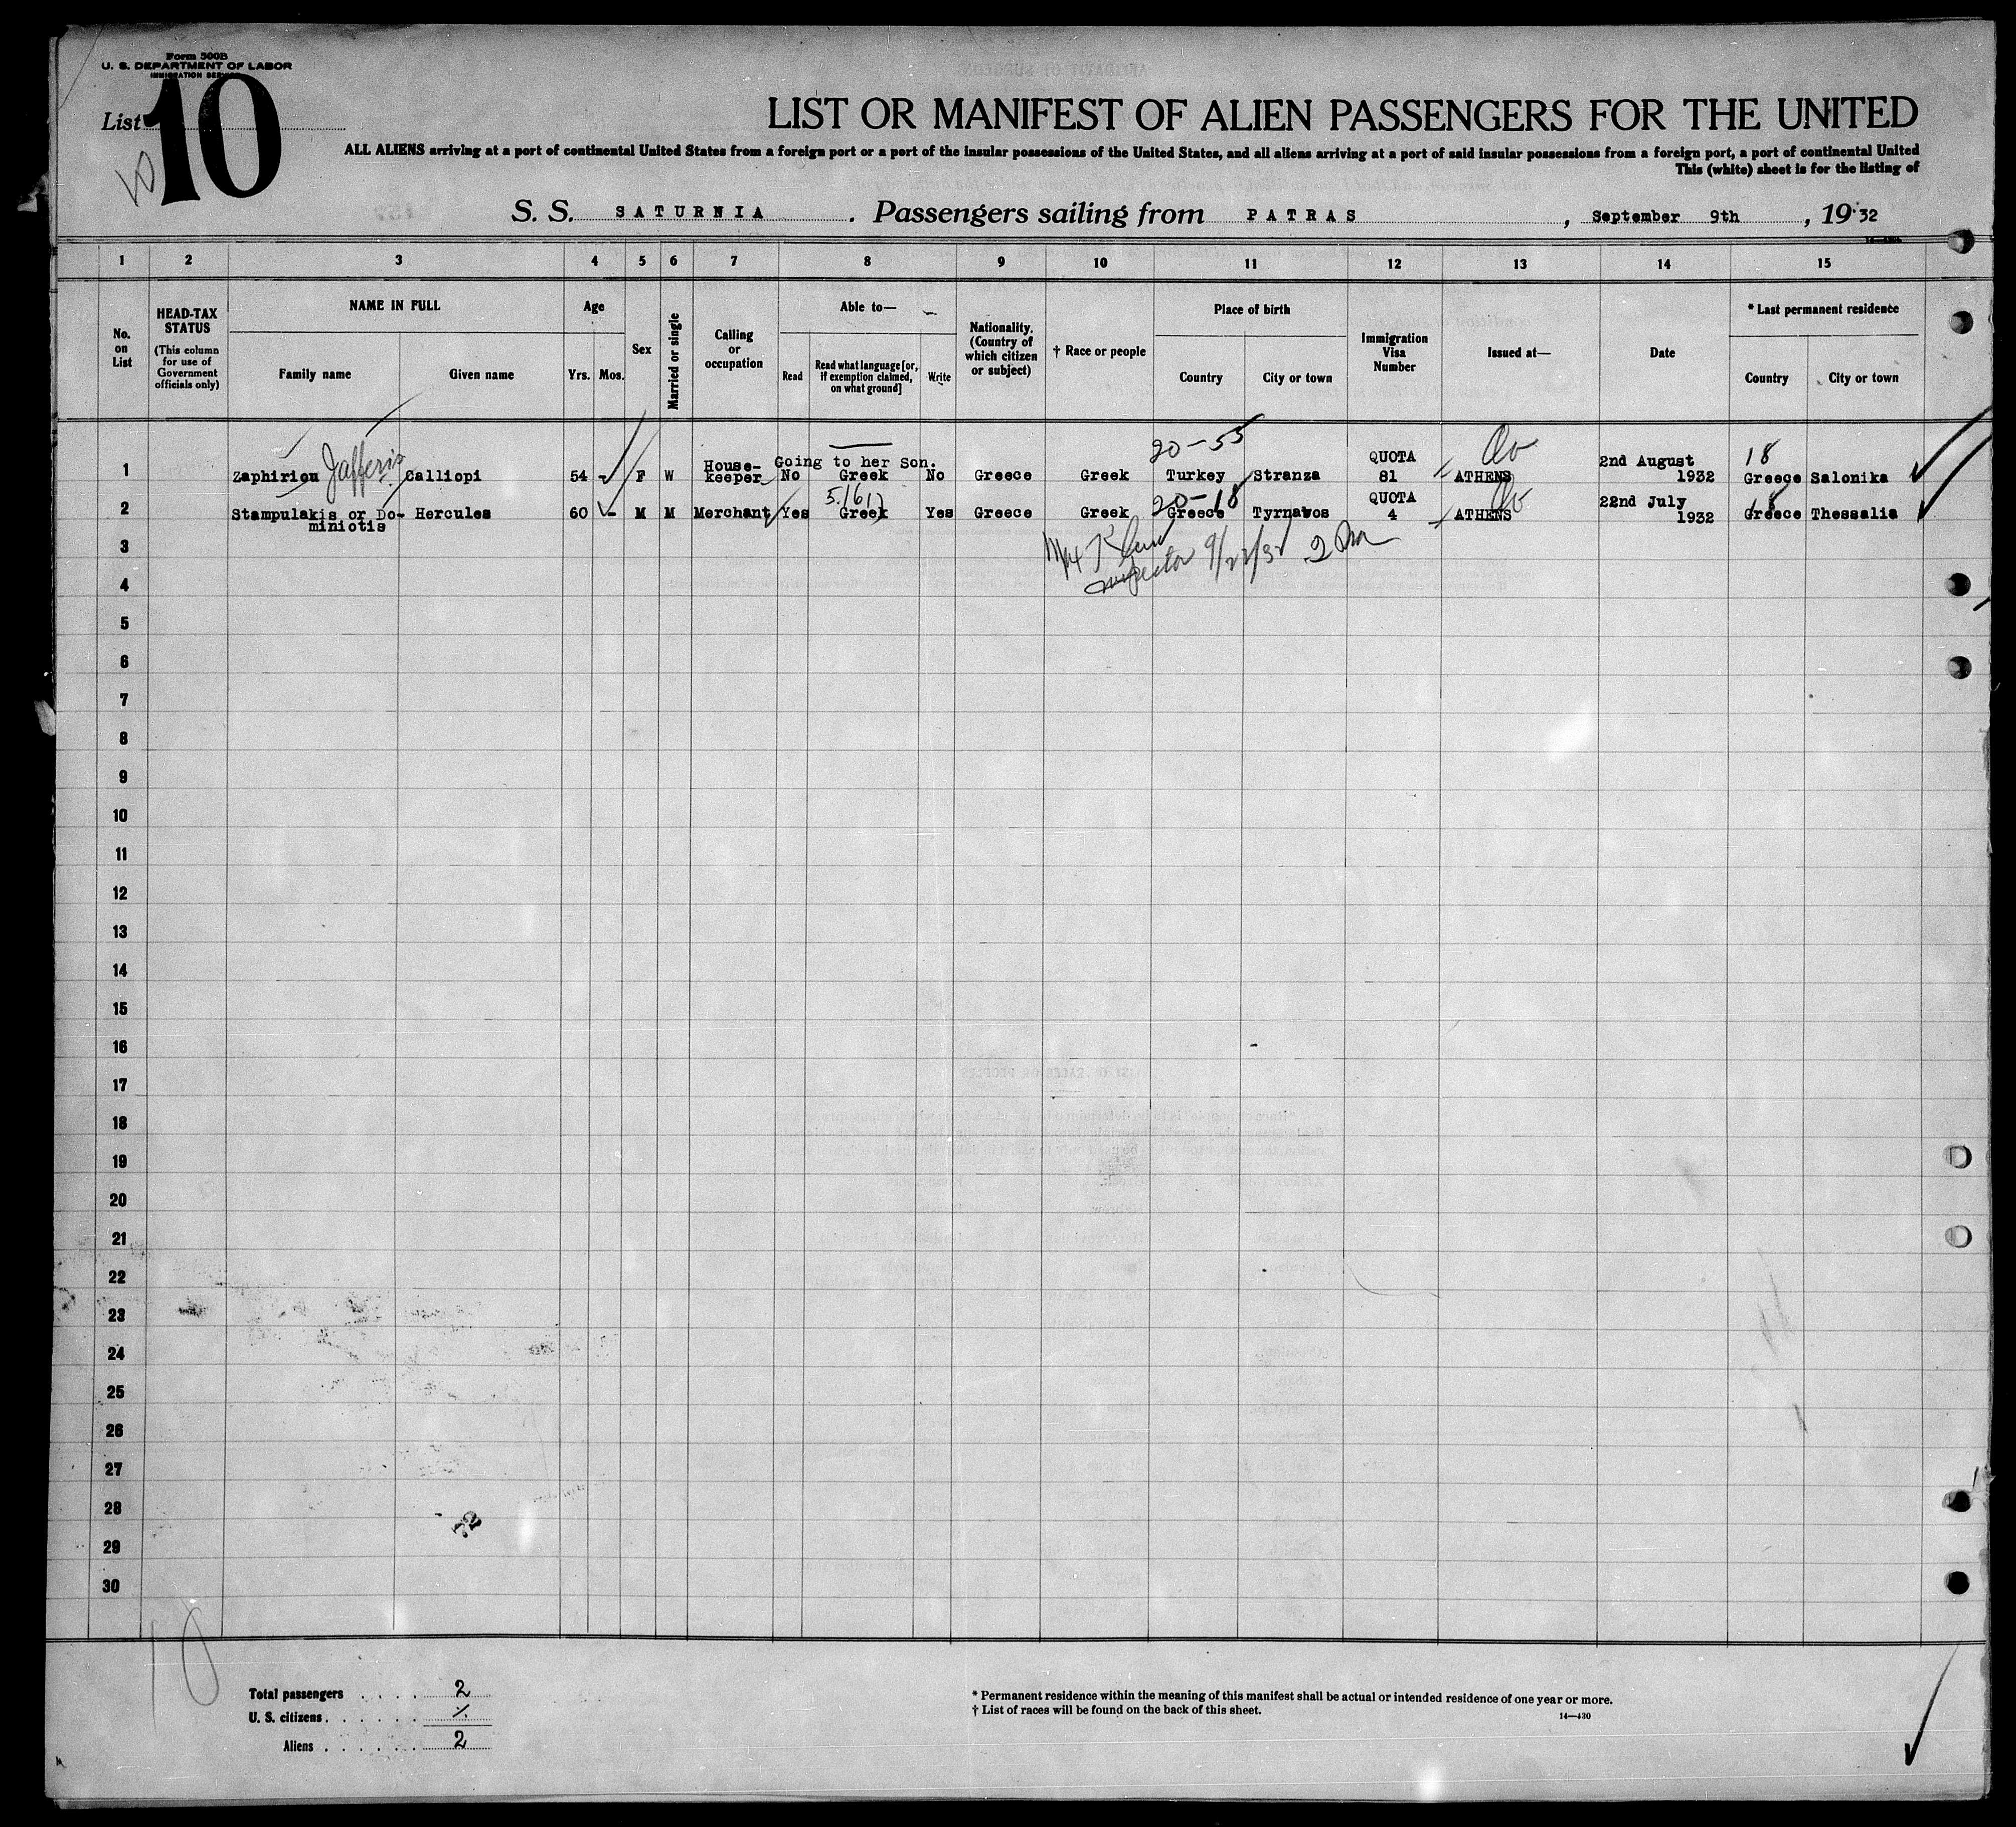 Form 500B
U. S. DEPARTMENT OF LABOR
IMMIGRATION SERVICE
List 10
10
LIST OR MANIFEST OF ALIEN PASSENGERS FOR THE UNITED
ALL ALIENS arriving at a port of continental United States from a foreign port or a port of the insular possessions of the United States, and all aliens arriving at a port of said insular possessions from a foreign port, a port of continental United
This (white) sheet is for the listing of
S. S. SATURNIA . Passengers sailing from PATRAS , September 9th , 19 32
1 2 3 4 5 6 7 8 9 10 11 12 13 14 15
No. on List
HEAD-TAX STATUS (This column for use of Government officials only)
NAME IN FULL
Family name Given name
Age
Yrs. Mos.
Sex
Married or single
Calling or occupation
Able to—
Read Read what language [or, if exemption claimed, on what ground] Write
Nationality. (Country of which citizen or subject)
† Race or people
Place of birth
Country City or town
Immigration Visa Number
Issued at—
Date
* Last permanent residence
Country City or town
20-55 18
1 Zaphiriou Jafferis Calliopi 54 - F W House-keeper No Going to her Son. Greek No Greece Greek Turkey Stranza QUOTA 81 ATHENS 2nd August 1932 Greece Salonika
5.16.17 20-18 18
2 Stampulakis or Do-miniotis Hercules 60 - M M Merchant Yes Greek Yes Greece Greek Greece Tyrnavos QUOTA 4 ATHENS 22nd July 1932 Greece Thessalia
3
Inspector 9/21/32 2
4
5
6
7
8
9
10
11
12
13
14
15
16
17
18
19
20
21
22
23
24
25
26
27
28
29
30
10
Total passengers . . . . 2
U. S. citizens . . . . . . /.
Aliens . . . . . . 2
* Permanent residence within the meaning of this manifest shall be actual or intended residence of one year or more.
† List of races will be found on the back of this sheet.
14—430